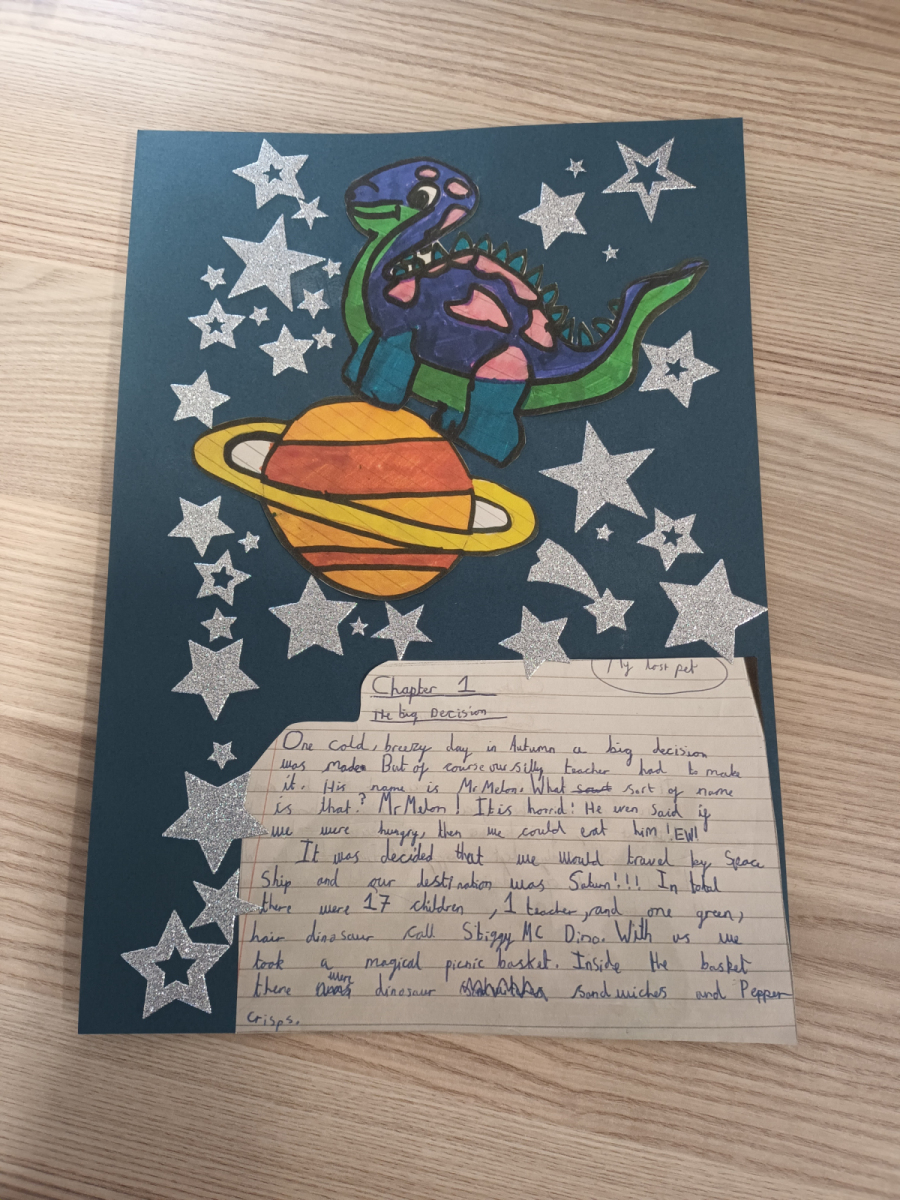 My lost pet
Chapter 1
The big Decision
One cold, breezy day in Autumn a big decision
was made. But of course our silly teacher had to make
it. His name is Mr Melon. What sort of name
is that? Mr Melon! It is horrid! He even said if
we were hungry, then we could eat him! EW!
It was decided that we would travel by Space
Ship and our destination was Saturn!!! In total
there were 17 children, 1 teacher, and one green,
hair dinosaur call Stiggy MC Dino. With us we
took a magical picnic basket. Inside the basket
there were dinosaur sandwiches and Pepper
crisps.